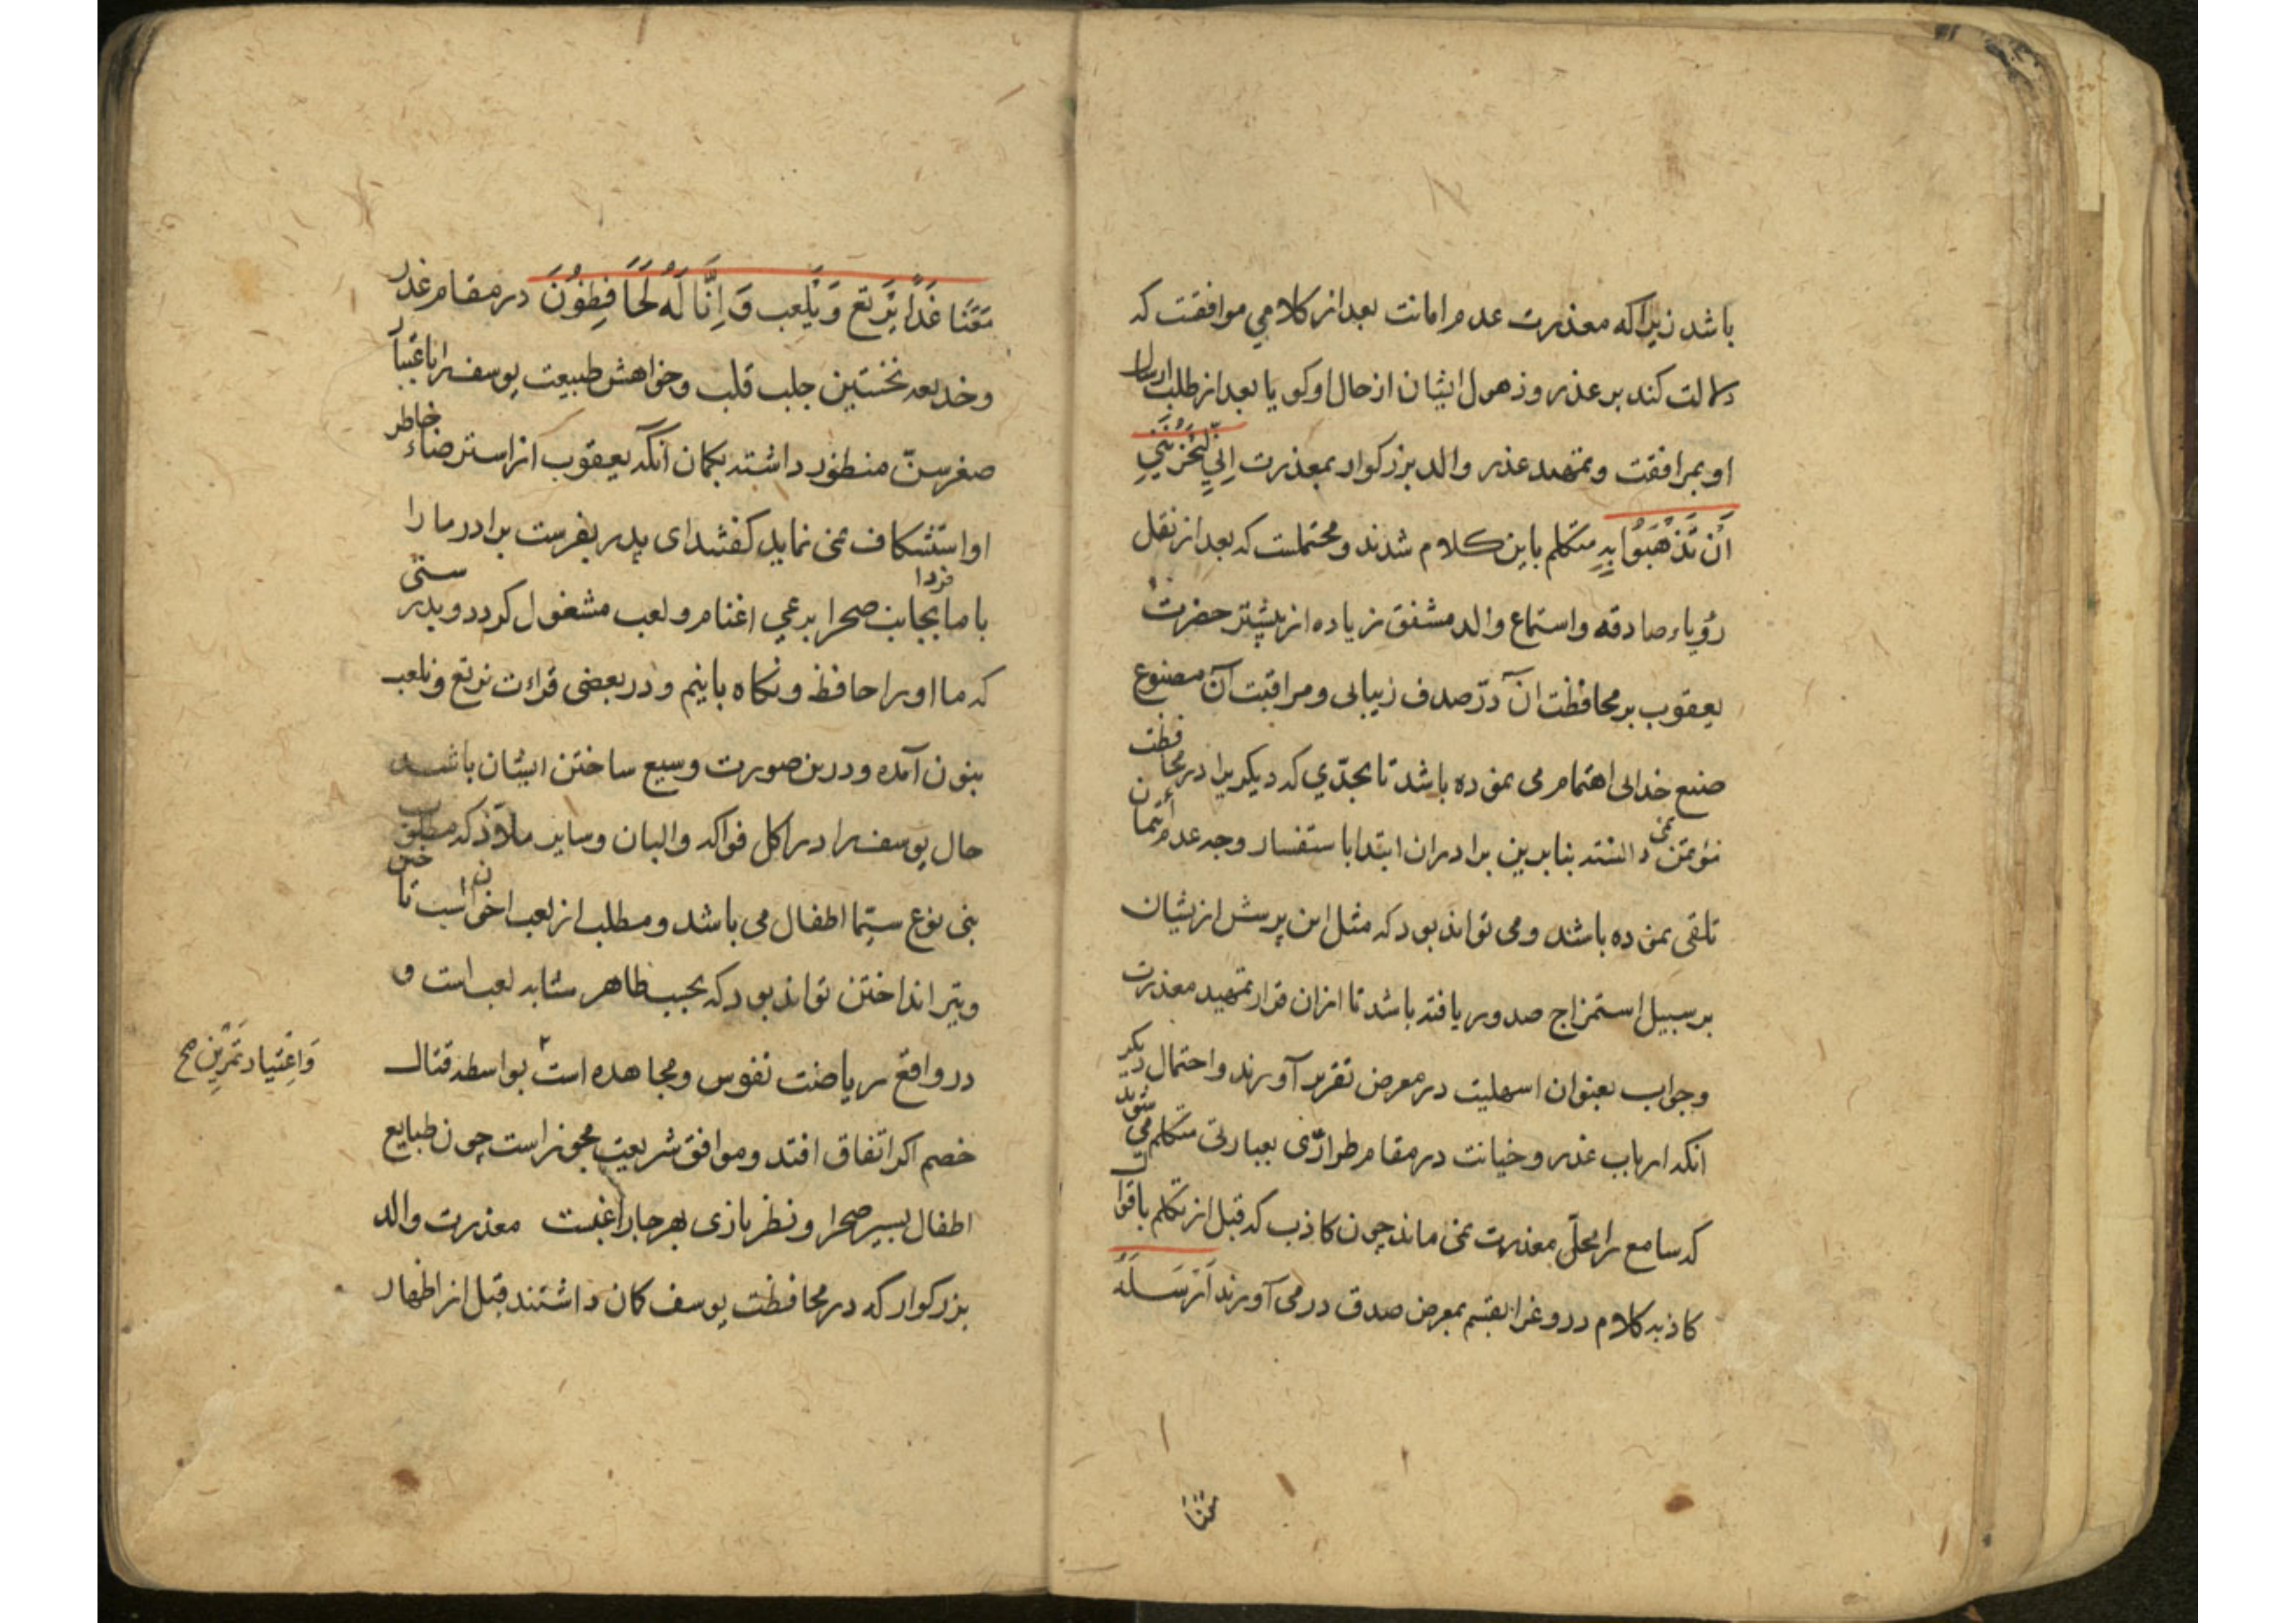 باشد زیرا که معذرت عدم امانت بعد از کلامي موافقت که
دلالت کند بر عذر و ذهول ایشان از حال او کویا بعد از طلب ارسال
او بمرافقت و تمهید عذر والد بزرکوار بمعذرت اِنّيِ لَيَحْزُنُنيِ
اَنْ تَذْهَبُوا بِهِ متکلم باین کلام شدند و محتملست که بعد از نقل
رؤیاء صادقه و استماع والد مشفق زیاده از پیشتر حضرت
یعقوب بر محافظت آن دُرّ صدف زیبائی و مراقبت آن مصنوع
صنع خدائی اهتمام می نموده باشد تا بحدّي که دیکریرا در محافظت
مؤتمن نمی دانسته بنابرین برادران ابتدا باستفسار وجه عدم ائتمان
تلقی نموده باشند و می تواند بود که مثل این پرسش ازیشان
بر سبیل استمزاج صدور یافته باشد تا ازان قرار تمهید معذرت
و جواب بعنوان اسهلیت در معرض تقریر آورند و احتمال دیکر
آنکه ارباب غدر و خیانت در مقام طرّاری بعبارتی متکلم می شوند
که سامع را محلّ معذرت نمی ماند چون کاذب که قبل از تکلم باقوال
کاذبه کلام دروغرا بقسم بمعرض صدق در می آورند اَرْسِلْهُ
مَعَنَا
مَعَنَا غَدًا يَرْتَعْ وَيَلْعَبْ وَاِنَّا لَهُ لَحَافِظُونَ در مقام غدر
و خدیعه نخستین جلب قلب و خواهش طبیعت یوسف را باعتبار
صغر سنّ منظور داشته بکمان آنکه یعقوب از استرضاء خاطر
او استنکاف نمی نماید کفتند ای پدر بفرست برادر ما را
با ما فردا بجانب صحرا برعي اغنام و لعب مشغول کردد و بدرستی
که ما او را حافظ و نکاه بانیم و در بعضی قراءت نرتع و نلعب
بنون آمده و درین صورت وسیع ساختن ایشان باشد
حال یوسف را در اکل فواکه و البان و سایر ملاذّ که مطلوب
بنی نوع سیّما اطفال می باشد و مطلب از لعب اخوان اسب تاختن
و تیر انداختن تواند بود که بحسب ظاهر مشابه لعب است و
در واقع ریاضت نفوس و مجاهده است بواسطه قتال
وَاِعْتِیاد تَمْرِین صح
خصم اکر اتفاق افتد و موافق شریعت مجوز است چون طبایع
اطفال بسیر صحرا و نظر بازی بهرجا راغبست معذرت والد
بزرکوار که در محافظت یوسف کان داشتند قبل از اظهار